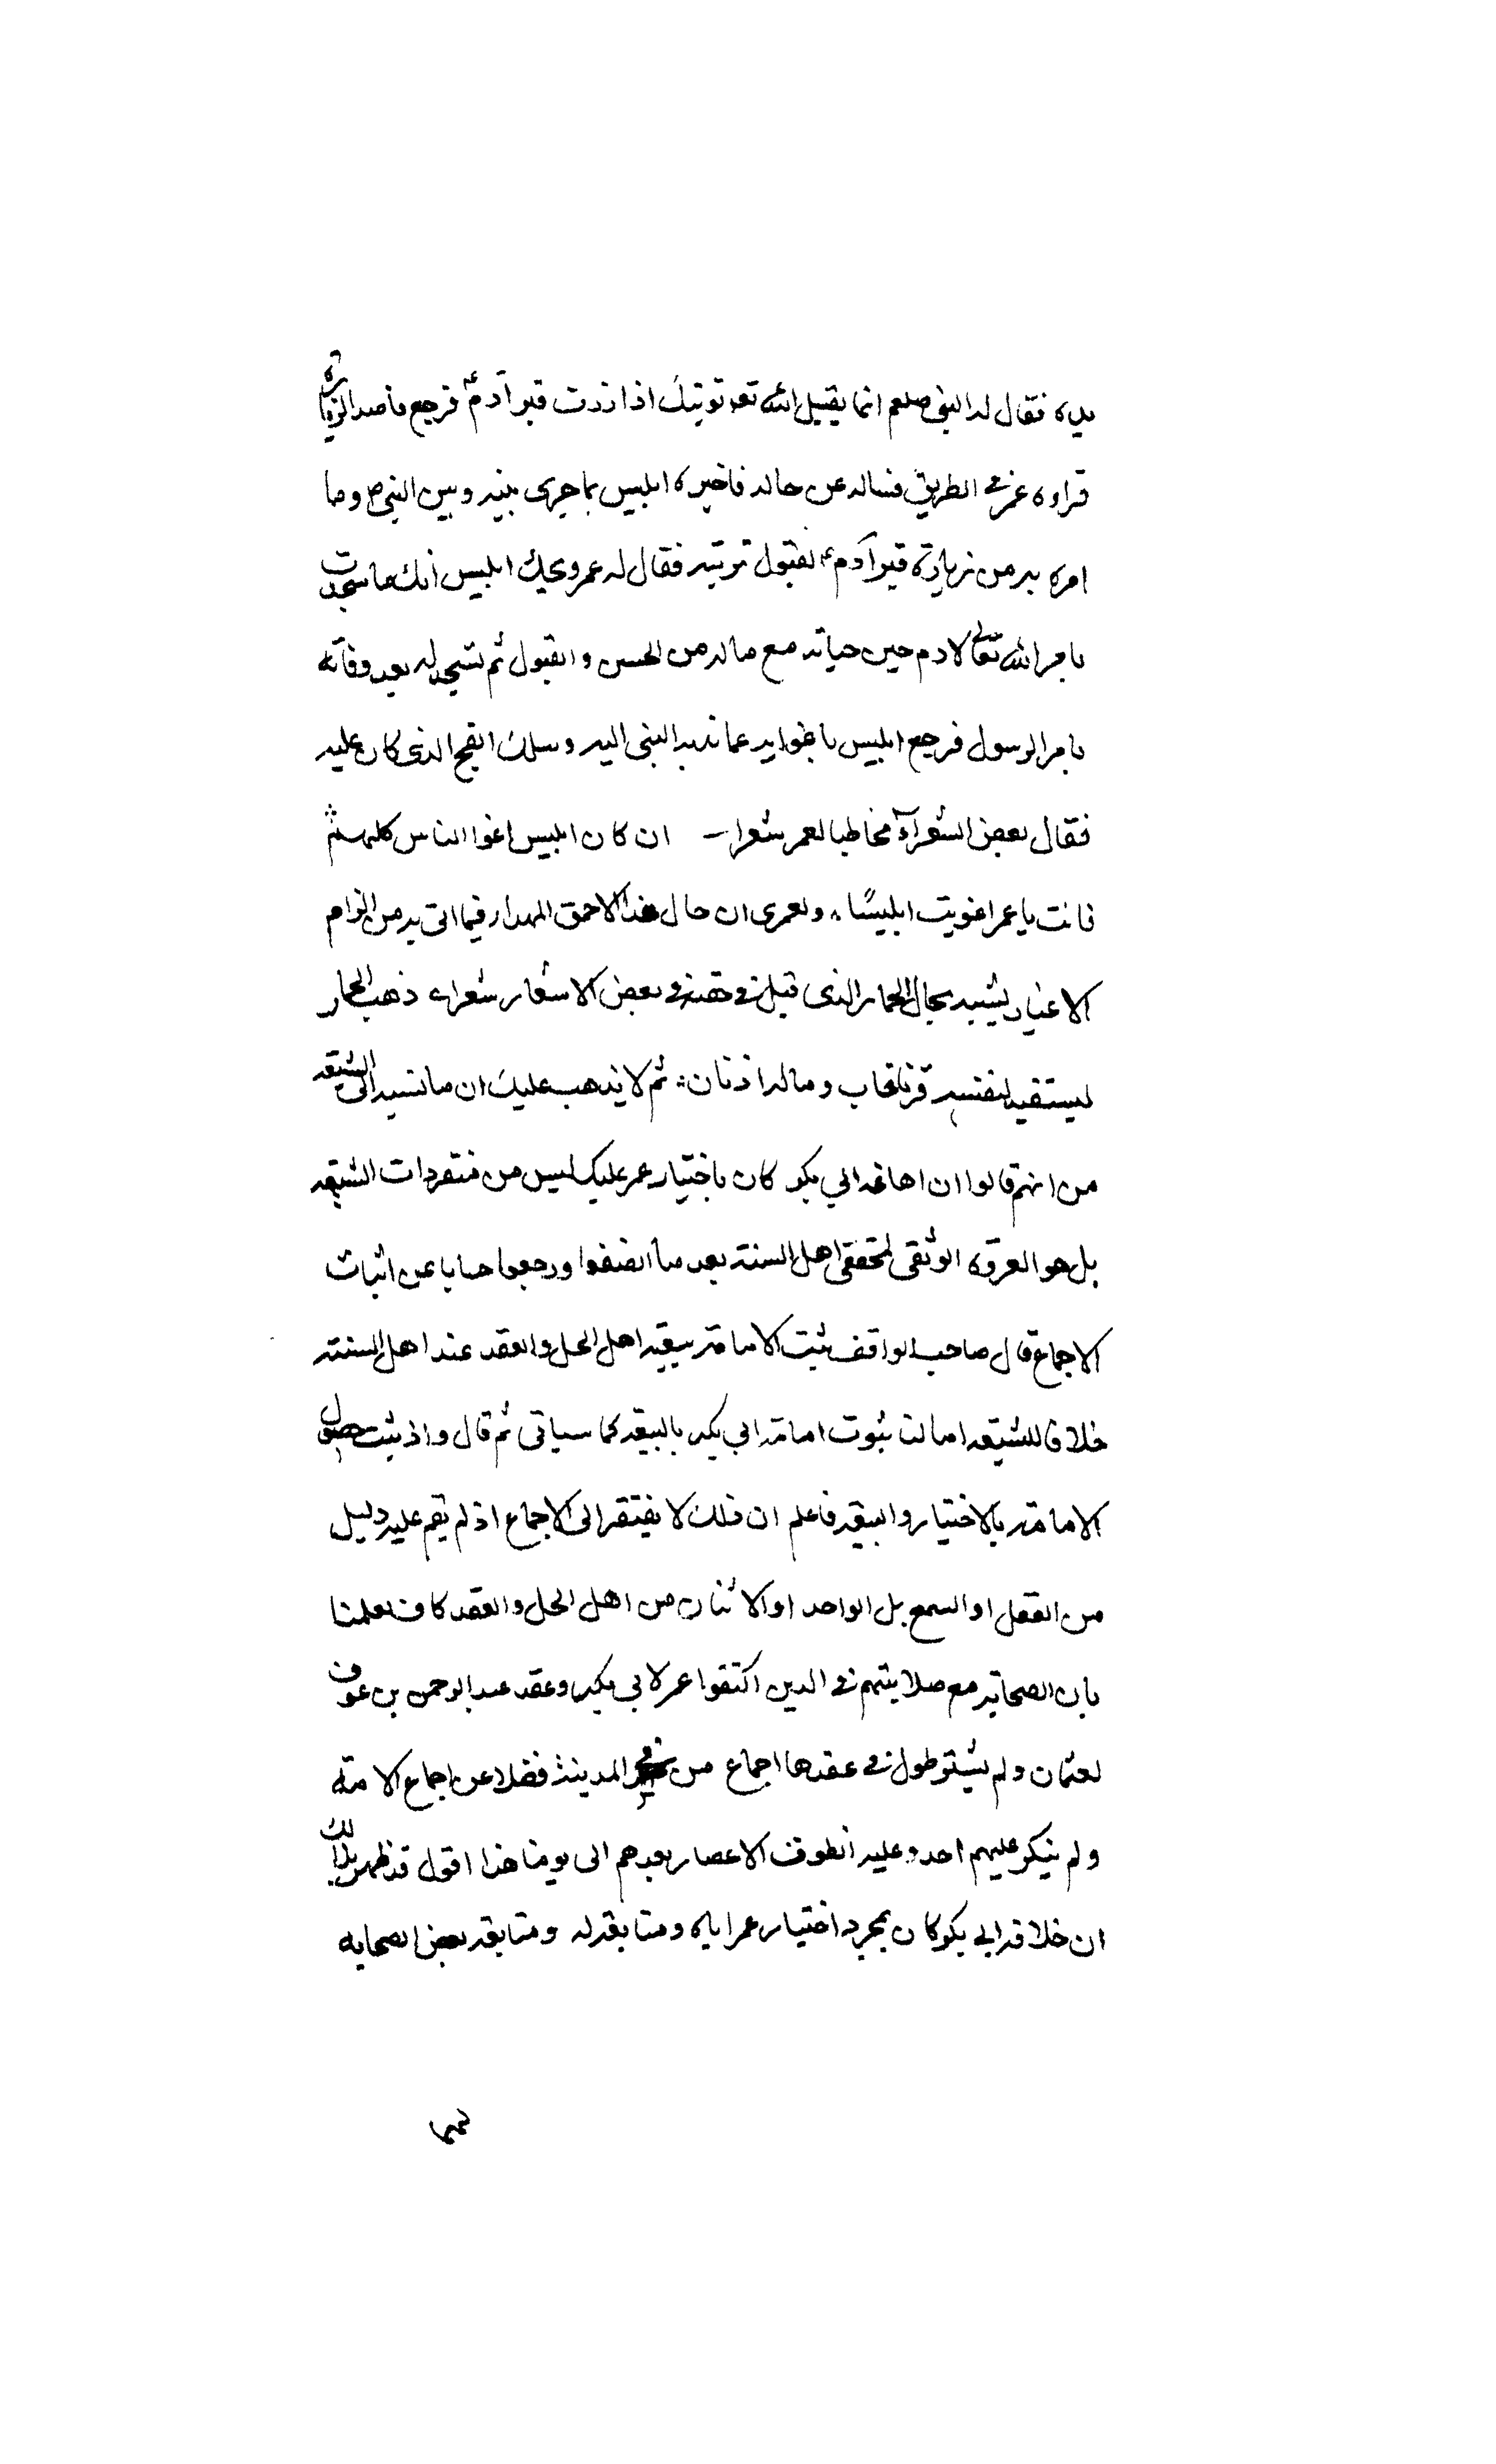 يده فقال له النبى صلعم انما يقبل الله تعه توبتك اذا زرت قبر آدم ع فرجع قاصد الزيارته
فراه عمر فى الطريق فساله عن حاله فاخبره ابليس بما جرى بينه وبين النبى ص وما
امره به من زيارة قبر آدم ع لقبول توبته فقال له عمر ويحك ابليس انك ما سجدت
بامر الله تعالى لادم حين حياته مع ماله من الحسن والقبول ثم تسجد له بعد وفاته
بامر الرسول فرجع ابليس باغوايه عما ندبه النبى اليه وسلك الفج الذى كان عليه
فقال بعض الشعراء مخاطبا لعمر شعرا ان كان ابليس اغوا الناس كلهم
فانت يا عمر اغويت ابليسًا ولعمرى ان حال هذا الاحمق المهدار فيما اتى به من الزام
الاغيار يشبه بحال الحمار الذى قيل فى حقه فى بعض الاشعار شعرا ذهب الحمار
ليستفيد لنفسه قرنا فاب وماله اذنان ثم لا يذهب عليك ان ما نسبه الى الشيعه
من انهم قالوا ان امامة ابي بكر كان باختيار عمر عليك ليس من متفردات الشيعه
بل هو العروه الوثقى لمحققى اهل السنة بعد ما انصفوا ورجعوا عن اثبات
الاجماع قال صاحب المواقف يثبت الامامة ببيعة اهل الحل والعقد عند اهل السنة
خلافا للشيعه لنا ثبوت امامة ابي بكر بالبيعه كما سياتى ثم قال واذ يثبت حصول
الامامة بالاختيار والبيعه فاعلم ان ذلك لا يفتقر الى الاجماع اذ لم يقم عليه دليل
من العقل او السمع بل الواحد او الاثنان من اهل الحل والعقد كاف لعلمنا
بان الصحابه مع صلابتهم فى الدين اكتفوا عمر لابي بكر وعقد عبد الرحمن بن عوف
لعثمان ولم يشترطوا فى عقدها اجماع من فى المدينة فضلا عن اجماع الامة
ولم ينكر عليهم احد وعليه انطوت الاعصار بعدهم الى يومنا هذا اقول قد ظهر بذلك
ان خلافة ابي بكر كان بمجرد اختيار عمر اياه ومتابعة له ومتابعة بعض الصحابه